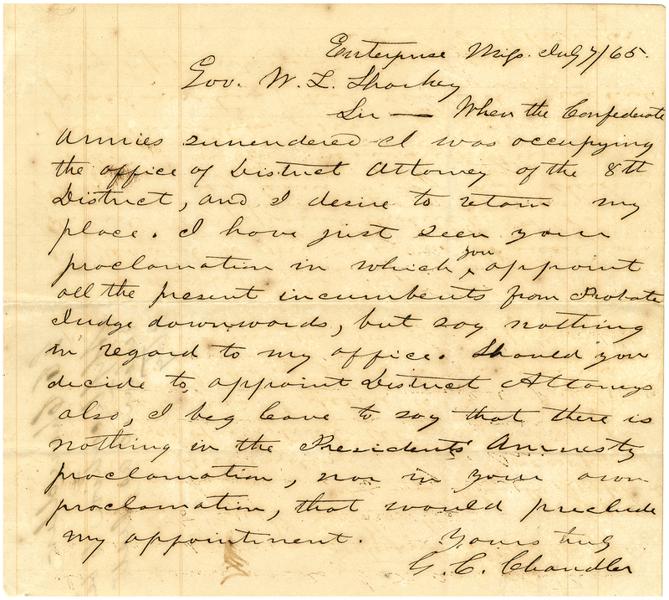 Enterprise Miss. July 7/65.
Gov. W. L. Sharkey
Sir — When the Confederate
armies surrendered I was occupying
the office of District Attorney of the 8th
District, and I desire to retain my
place. I have just seen your
proclamation in which you appoint
all the present incumbents from Probate
Judge downwards, but say nothing
in regard to my office. Should you
decide to appoint District Attorneys
also, I beg leave to say that there is
nothing in the Presidents' Amnesty
proclamation, nor in your own
proclamation, that would preclude
my appointment.
Yours truly
G. C. Chandler